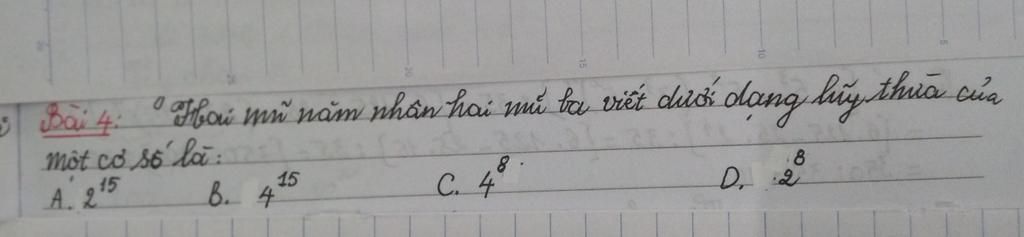 Bài 4: Hai mũ năm nhân hai mũ ba viết dưới dạng lũy thừa của
một cơ số là:
A. 2¹⁵ B. 4¹⁵ C. 4⁸ D. 2⁸